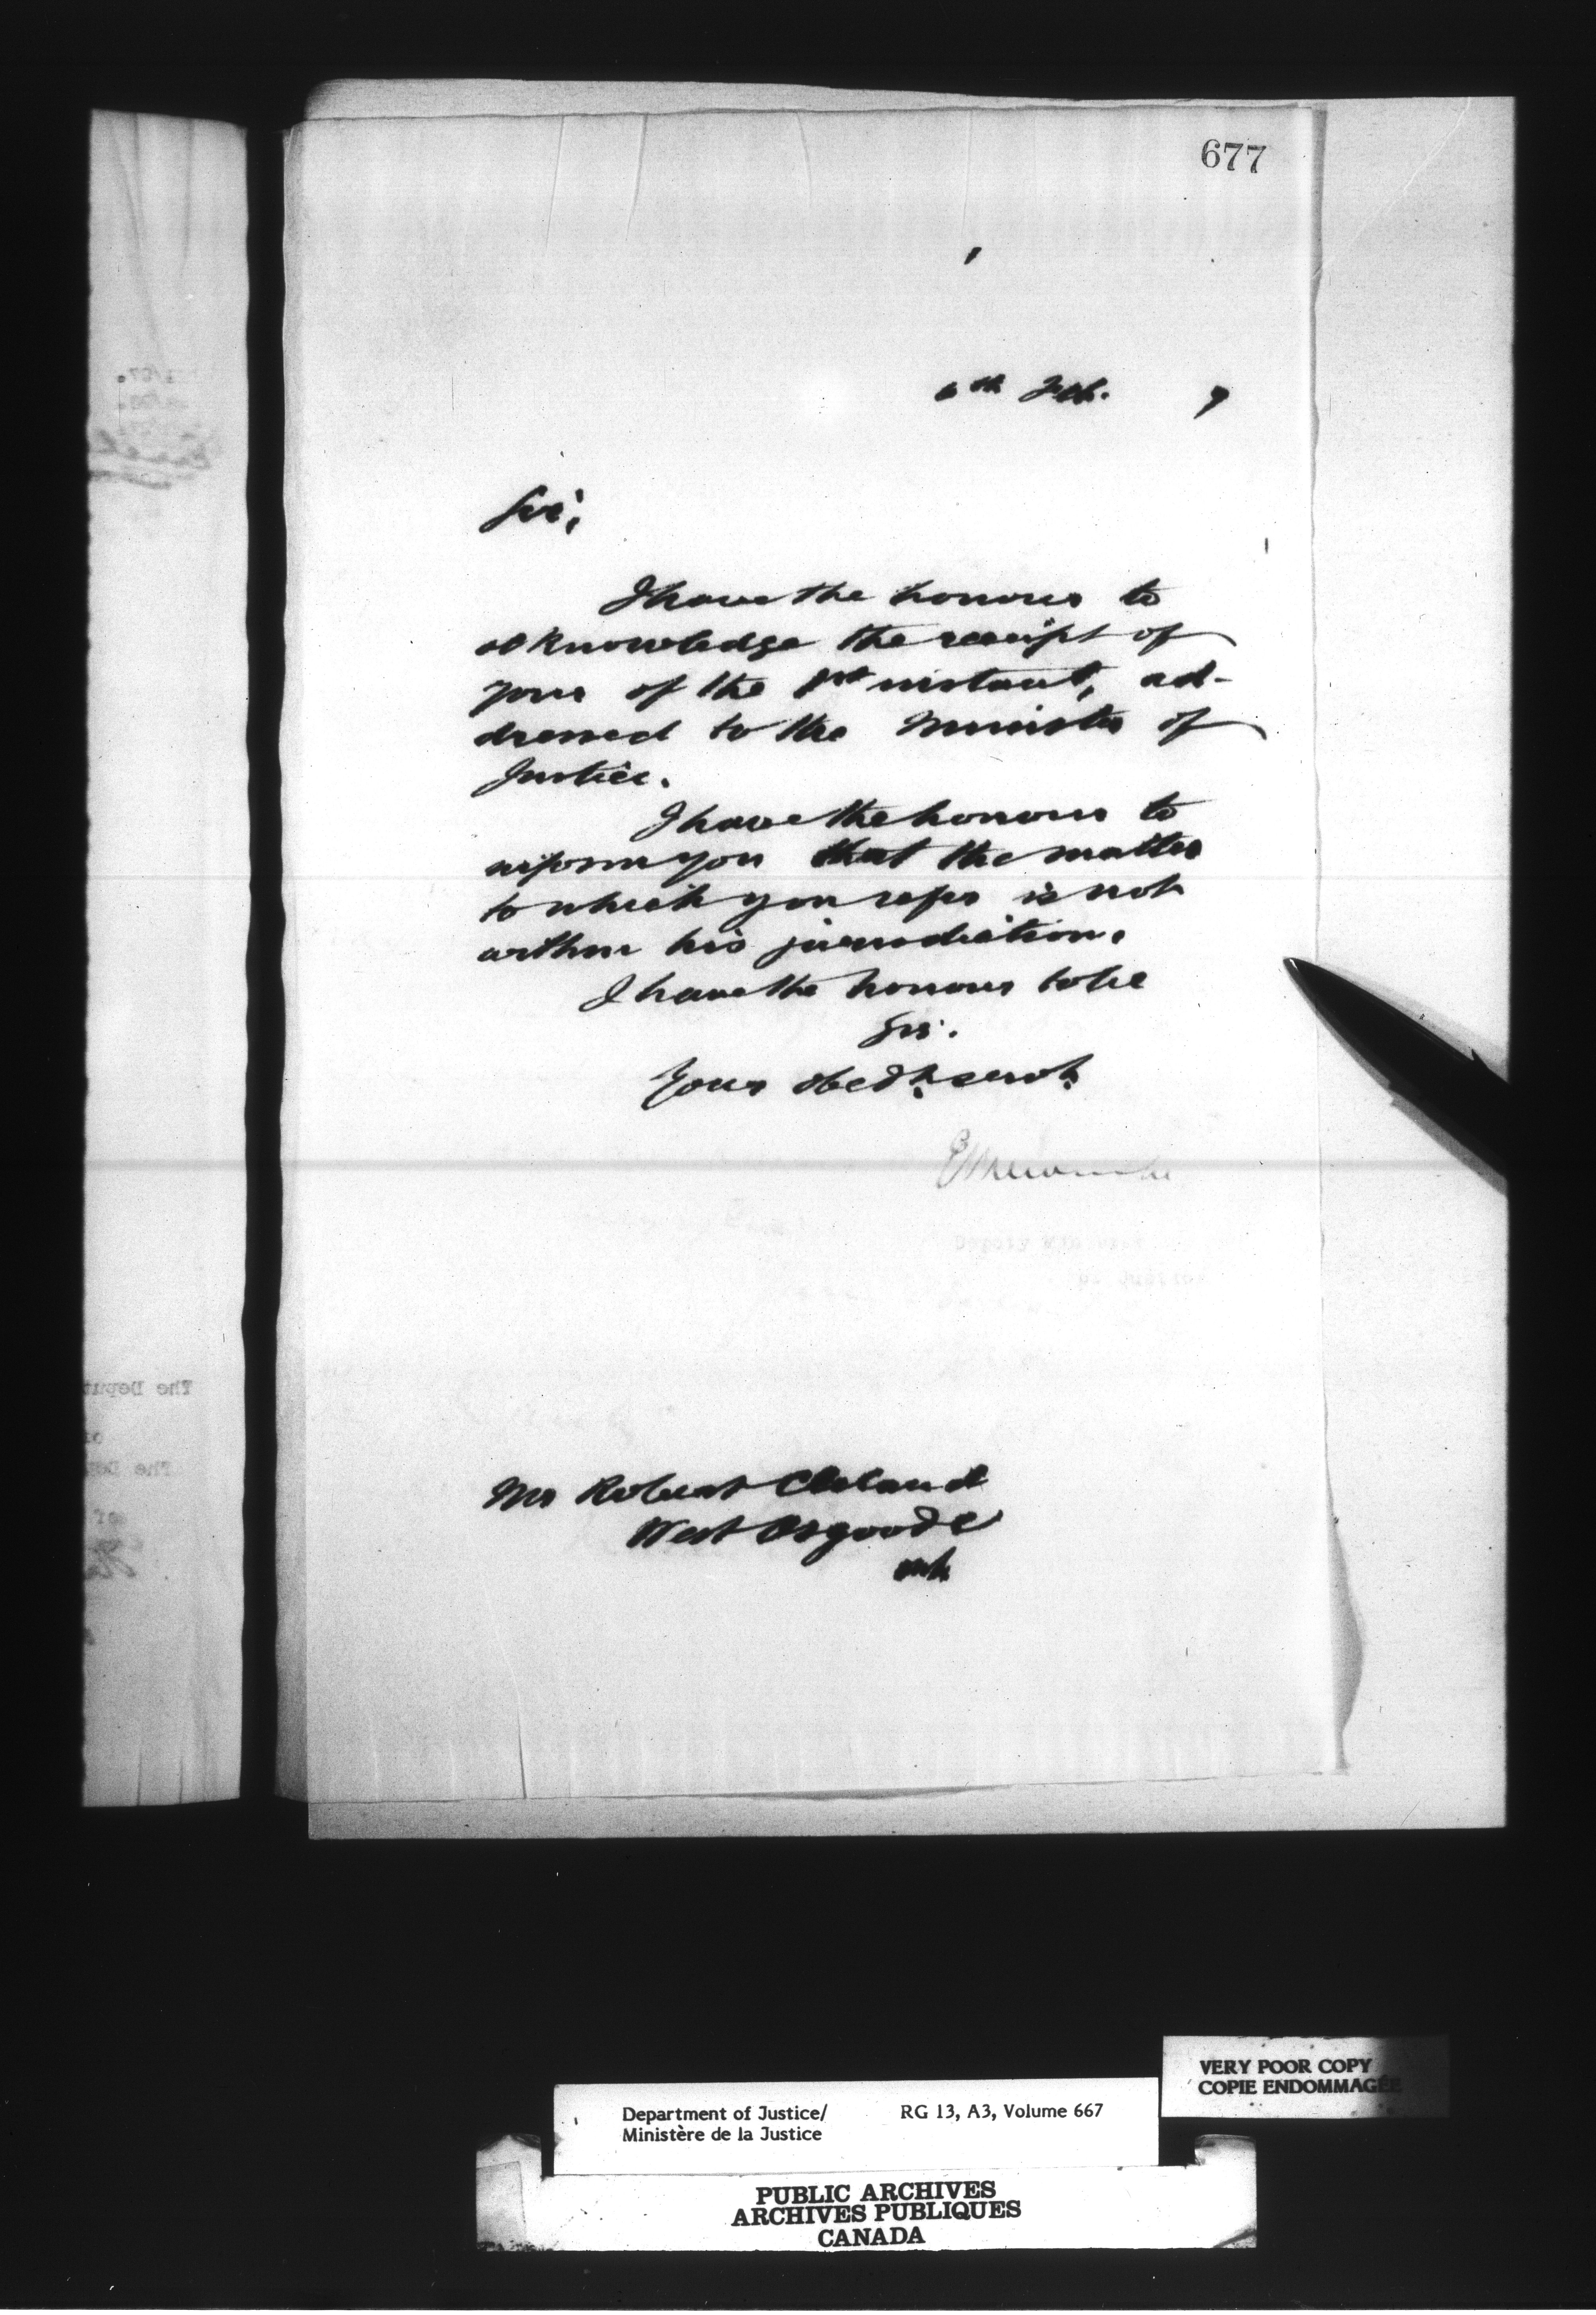 677
6th Feb. 7
Sir,
I have the honour to
acknowledge the receipt of
yours of the 1st instant, ad-
dressed to the Minister of
Justice.
I have the honour to
inform you that the matter
to which you refer is not
within his jurisdiction.
I have the honour to be
Sir.
Your obedt. servt.
Deputy Minister
of Justice
Mr Robert Cleland
West Osgoode
Ont.
The Deput
of
The Dep
of
VERY POOR COPY
COPIE ENDOMMAGÉE
Department of Justice/ RG 13, A3, Volume 667
Ministère de la Justice
PUBLIC ARCHIVES
ARCHIVES PUBLIQUES
CANADA